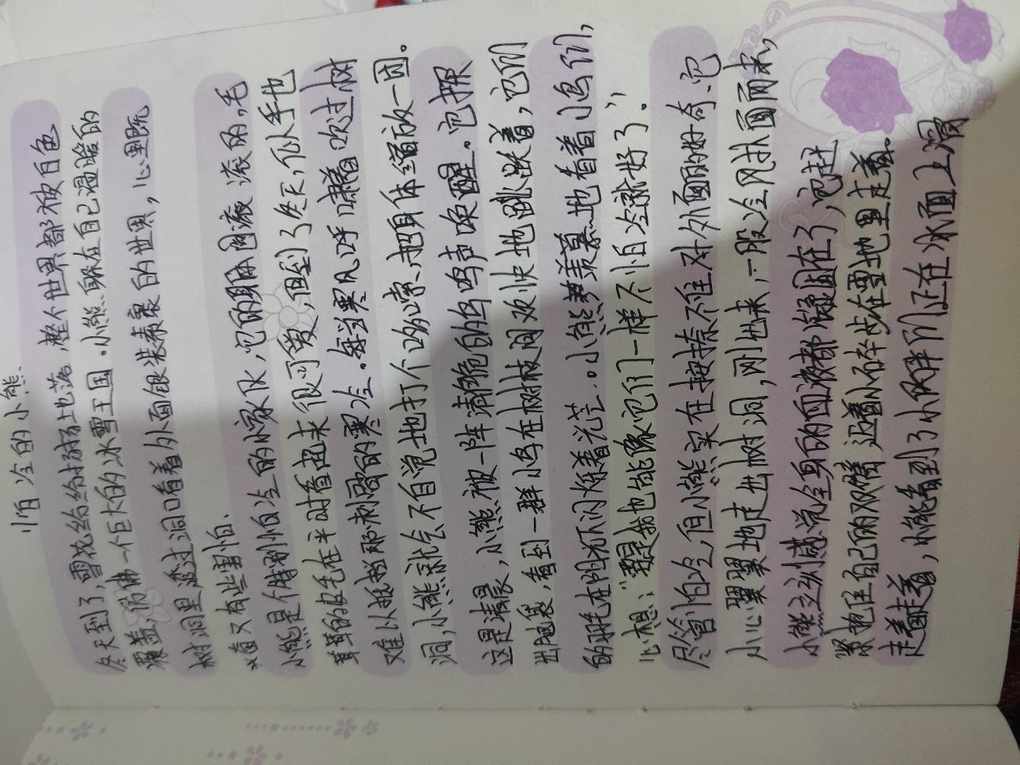 怕冷的小熊.
冬天到了,雪花纷纷扬扬地落,整个世界都被白色
覆盖,仿佛一个巨大的冰雪王国。小熊躲在自己温暖的
树洞里透过洞口看着外面银装素裹的世界,心里既
又有些害怕.
小熊是个特别怕冷的小家伙,它的眼睛圆滚滚的,毛
茸茸的皮毛在平时看起来很可爱,但到了冬天,似乎也
难以抵御那刺骨的寒冷。每当寒风呼啸着吹过树
洞,小熊就会不自觉地打个哆嗦,把身体缩成一团。
这是清晨,小熊被一阵清脆的鸟鸣声唤醒。它探
出脑袋,看到一群小鸟在树枝间欢快地跳跃着,它们
的羽毛在阳光下闪烁着光芒。小熊羡慕地看着小鸟们,
心想:“要是我也能像它们一样不怕冷就好了。”
尽管怕冷,但小熊实在按捺不住对外面的好奇,它
小心翼翼地走出树洞,刚出来,一股冷风扑面而来,
小熊立刻感觉全身的血液都凝固在了,它赶
紧抱住自己的双臂 迈着小碎步在雪地里走着。
走着走着,小熊看到了小伙伴们正在冰面上滑